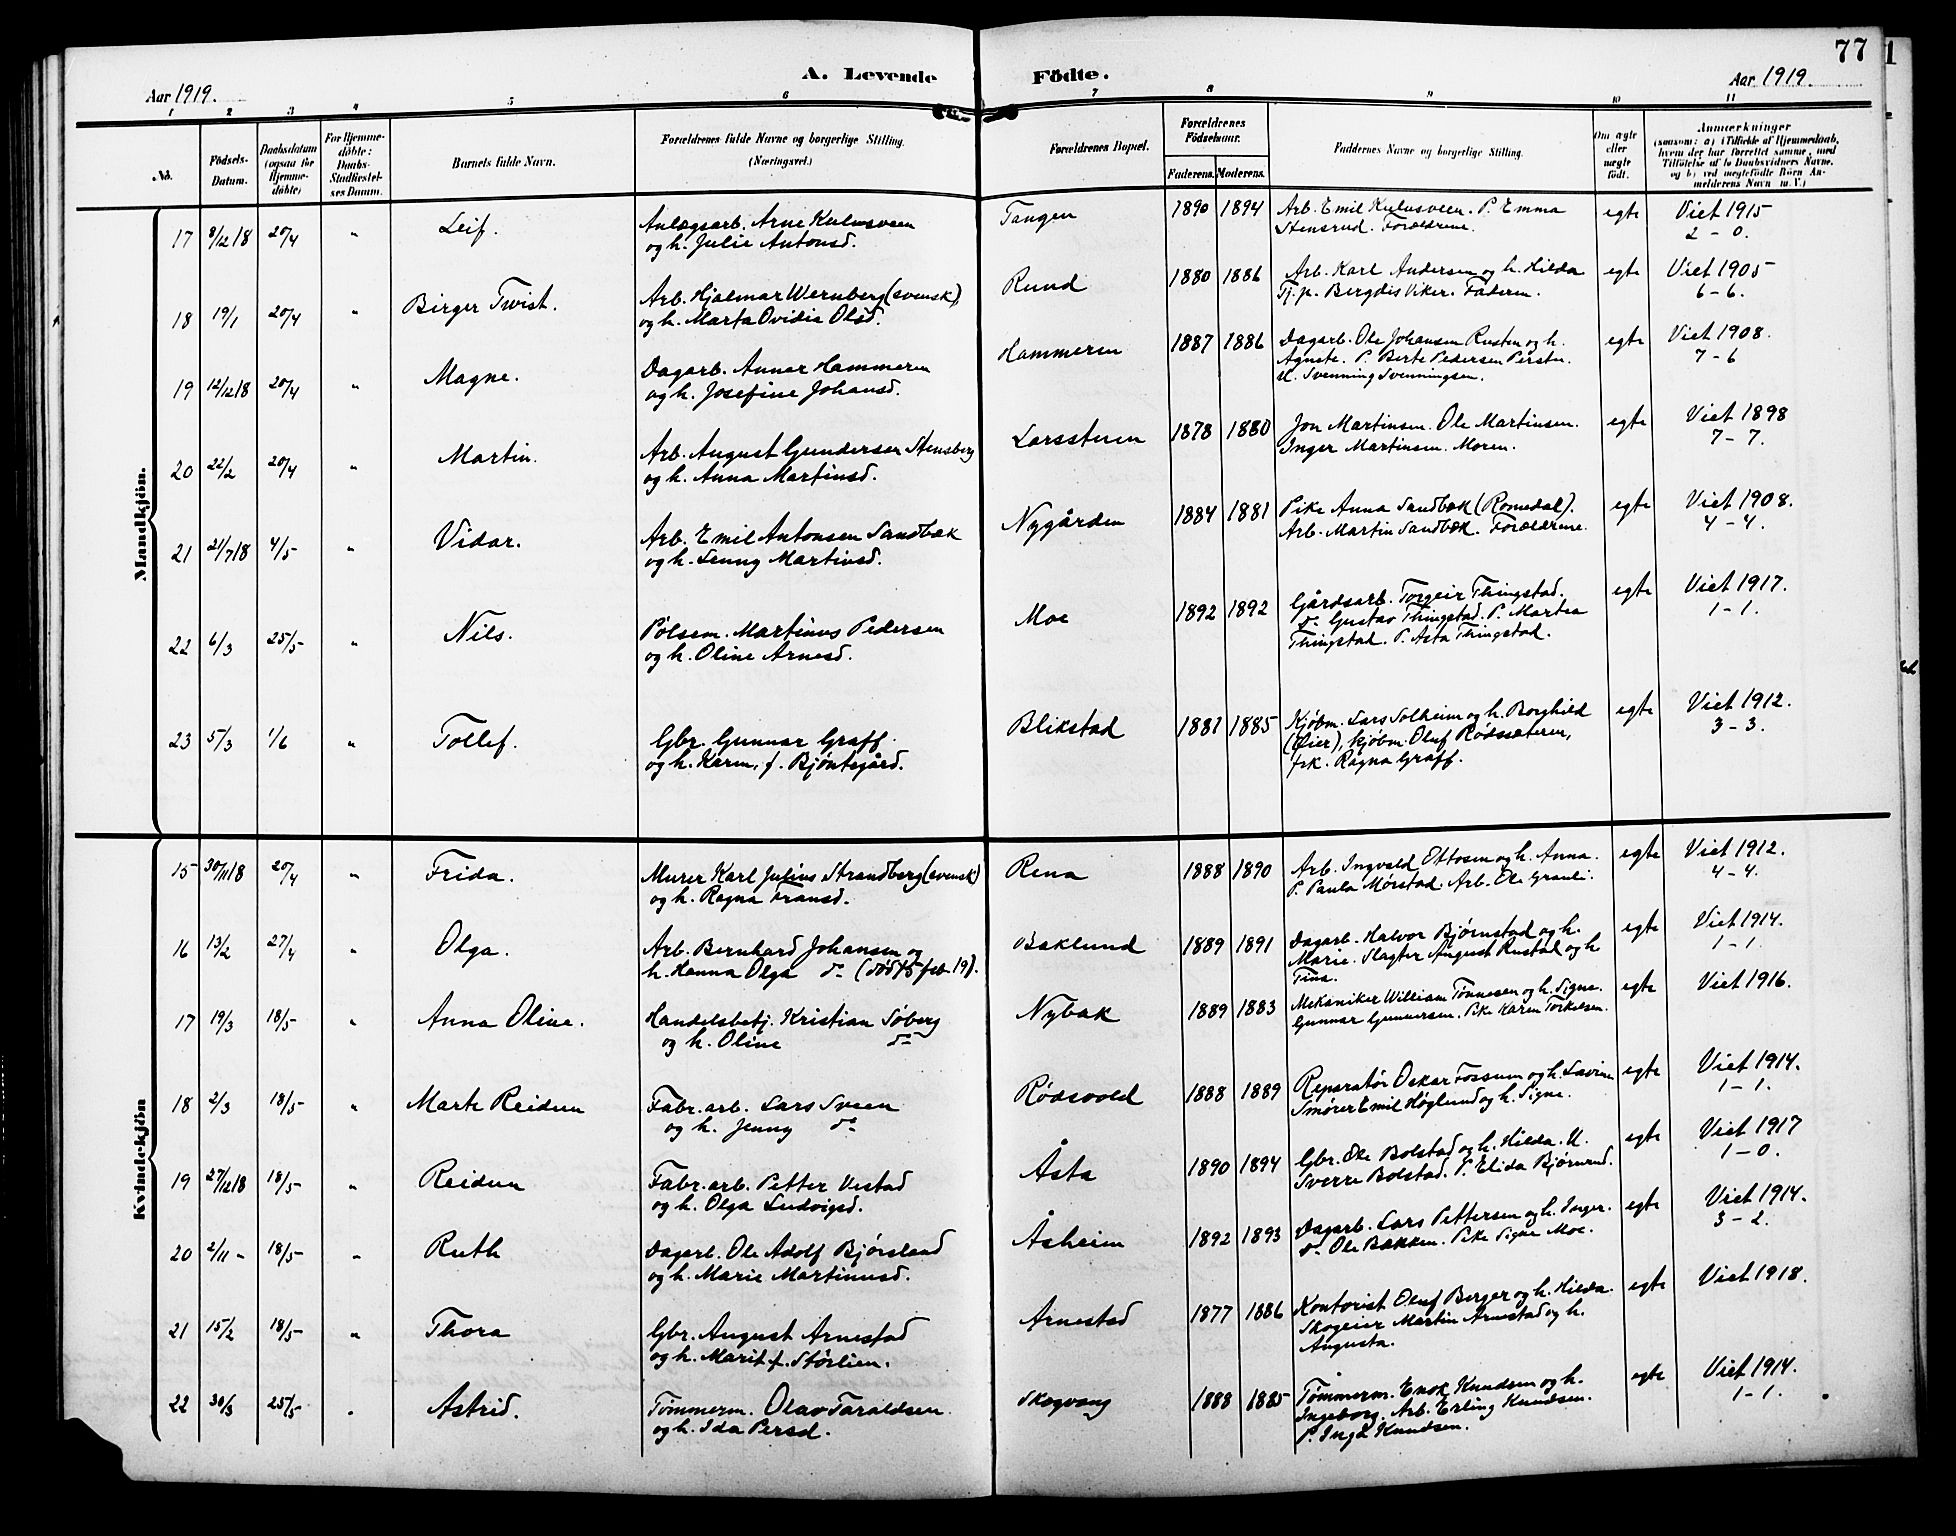 77
A. Levende Födte.
Aar 1919.
Aar 1919.
1 2 3 4 5 6 7 8 9 10 11
No.
Födsels-Datum.
Daabsdatum (ogsaa for Hjemme-döbte)
For Hjemme-döbte: Daabs-Stadfæstelses Datum.
Barnets fulde Navn.
Forældrenes fulde Navne og borgerlige Stilling.
(Næringsvei.)
Forældrenes Bopæl.
Forældrenes Födselsaar.
Faderens. Moderens.
Faddernes Navne og borgerlige Stilling.
Om ægte eller uægte födt.
Anmærkninger
(saasom: a) i Tilfælde af Hjemmedaab, hvem der har forrettet samme, med Tilföielse af to Daabsvidners Navne, og b) ved uegtefödte Börn Anmelderens Navn m. V.)
Mandkjön.
17 8/12 18 20/4 " Leif. Anlægsarb. Arne Kulusveen Tangen 1890 1894 Arb. Emil Kulusveen. P. Emma egte Viet 1915
og h. Julie Antonsd. Stensrud. Forældrene. 2 - 0.
18 19/1 20/4 " Birger Twist. Arb. Hjalmar Wernberg (svensk) Rund 1880 1886 Arb. Karl Andersen og h. Hilda egte Viet 1905
og h. Marta Ovidia Olsd. Tj.p. Bergdis Viker. Faderen. 6 - 6.
19 12/12 18 20/4 " Magne. Dagarb. Annar Hammeren Hammeren 1887 1886 Dagarb. Ole Johansen Rusten og h. egte Viet 1908.
og h. Josefine Johansd. Agnete. P. Berte Pedersen Persten. 7 - 6
U. Svenning Svenningsen.
20 22/2 20/4 " Martin. Arb. August Gundersen Stensberg Larssteen 1878 1880 Jon Martinsen. Ole Martinsen. egte Viet 1898
og h. Anna Martinsd. Inger Martinsen. Moren. 7 - 7.
21 21/7 18 4/5 " Vidar. Arb. Emil Antonsen Sandbæk Nygården 1884 1881 Pike Anna Sandbæk (Romedal). egte Viet 1908.
og h. Jenny Martinsd. Arb. Martin Sandbæk. Forældrene. 4 - 4.
22 6/3 25/5 " Nils. Pölsem. Martinus Pedersen Moe 1892 1892 Gårdsarb. Torgeir Thingstad. egte Viet 1917.
og h. Oline Arnesd. do Gustav Thingstad. P. Martea 1 - 1.
Thingstad. P. Asta Thingstad.
23 5/3 1/6 " Tollef. Gbr. Gunnar Graff Blikstad 1881 1885 Kjøbm. Lars Solheim og h. Borghild egte Viet 1912.
og h. Karen, f. Bjöntegård. (Øier), kjøbm. Oluf Rødssæteren, 3 - 3.
frk. Ragna Graff.
Kvindekjön
15 30/11 18 20/4 " Frida. Murer Karl Julius Strandberg (svensk) Rena 1888 1890 Arb. Ingvald Ottosen og h. Anna. egte Viet 1912.
og h. Ragna Fransd. P. Paula Mørstad. Arb. Ole Granli. 4 - 4.
16 13/2 27/4 " Olga. Arb. Bernhard Johansen og Baklund 1889 1891 Dagarb. Halvor Bjørnstad og h. egte Viet 1914.
h. Hanna Olga do (död 15 feb. 19). Marie. Slagter August Rustad og h 1 - 1.
Tina.
17 19/3 18/5 " Anna Oline. Handelsbetj. Kristian Søberg Nybak 1889 1883 Mekaniker William Tønnesen og h. Signe. egte Viet 1916.
og h. Oline do Gunnar Gunnersen. Pike Karen Torkelsen.
18 2/3 18/5 " Marte Reidun Fabr. arb. Lars Sveen Rødsvold 1888 1889 Reparatør Oskar Fossum og h. Lavine egte Viet 1914.
og h. Jenny do Smører Emil Høglund og h. Signe. 1 - 1.
19 27/12 18 18/5 " Reidun Fabr. arb. Petter Vestad Åsta 1890 1894 Gbr. Ole Bolstad og h. Hilda. U. egte Viet 1917
og h. Olga Ludvigsd. Sverre Bolstad. P. Elida Bjørnerud. 1 - 0.
20 2/11 - 18/5 " Ruth Dagarb. Ole Adolf Bjørsland Åsheim 1892 1893 Dagarb. Lars Pettersen og h. Inger. egte Viet 1914.
og h. Marie Martinusd. do Ole Bakken. Pike Signe Moe. 3 - 2.
21 15/2 18/5 " Thora Gbr. August Arnestad Arnestad 1877 1886 Kontorist Oluf Berger og h. Hilda. egte Viet 1918.
og h. Marit f. Störlien. Skogeier Martin Arnestad og h.
Augusta.
22 30/3 25/5 " Astrid. Tömmerm. Olav Taraldsen Skogvang 1888 1885 Tømmerm. Enok Knudsen og h. egte Viet 1914.
og h. Ida Persd. Ingeborg. Arb. Erling Knudsen. 1 - 1.
P. Inga Knudsen.